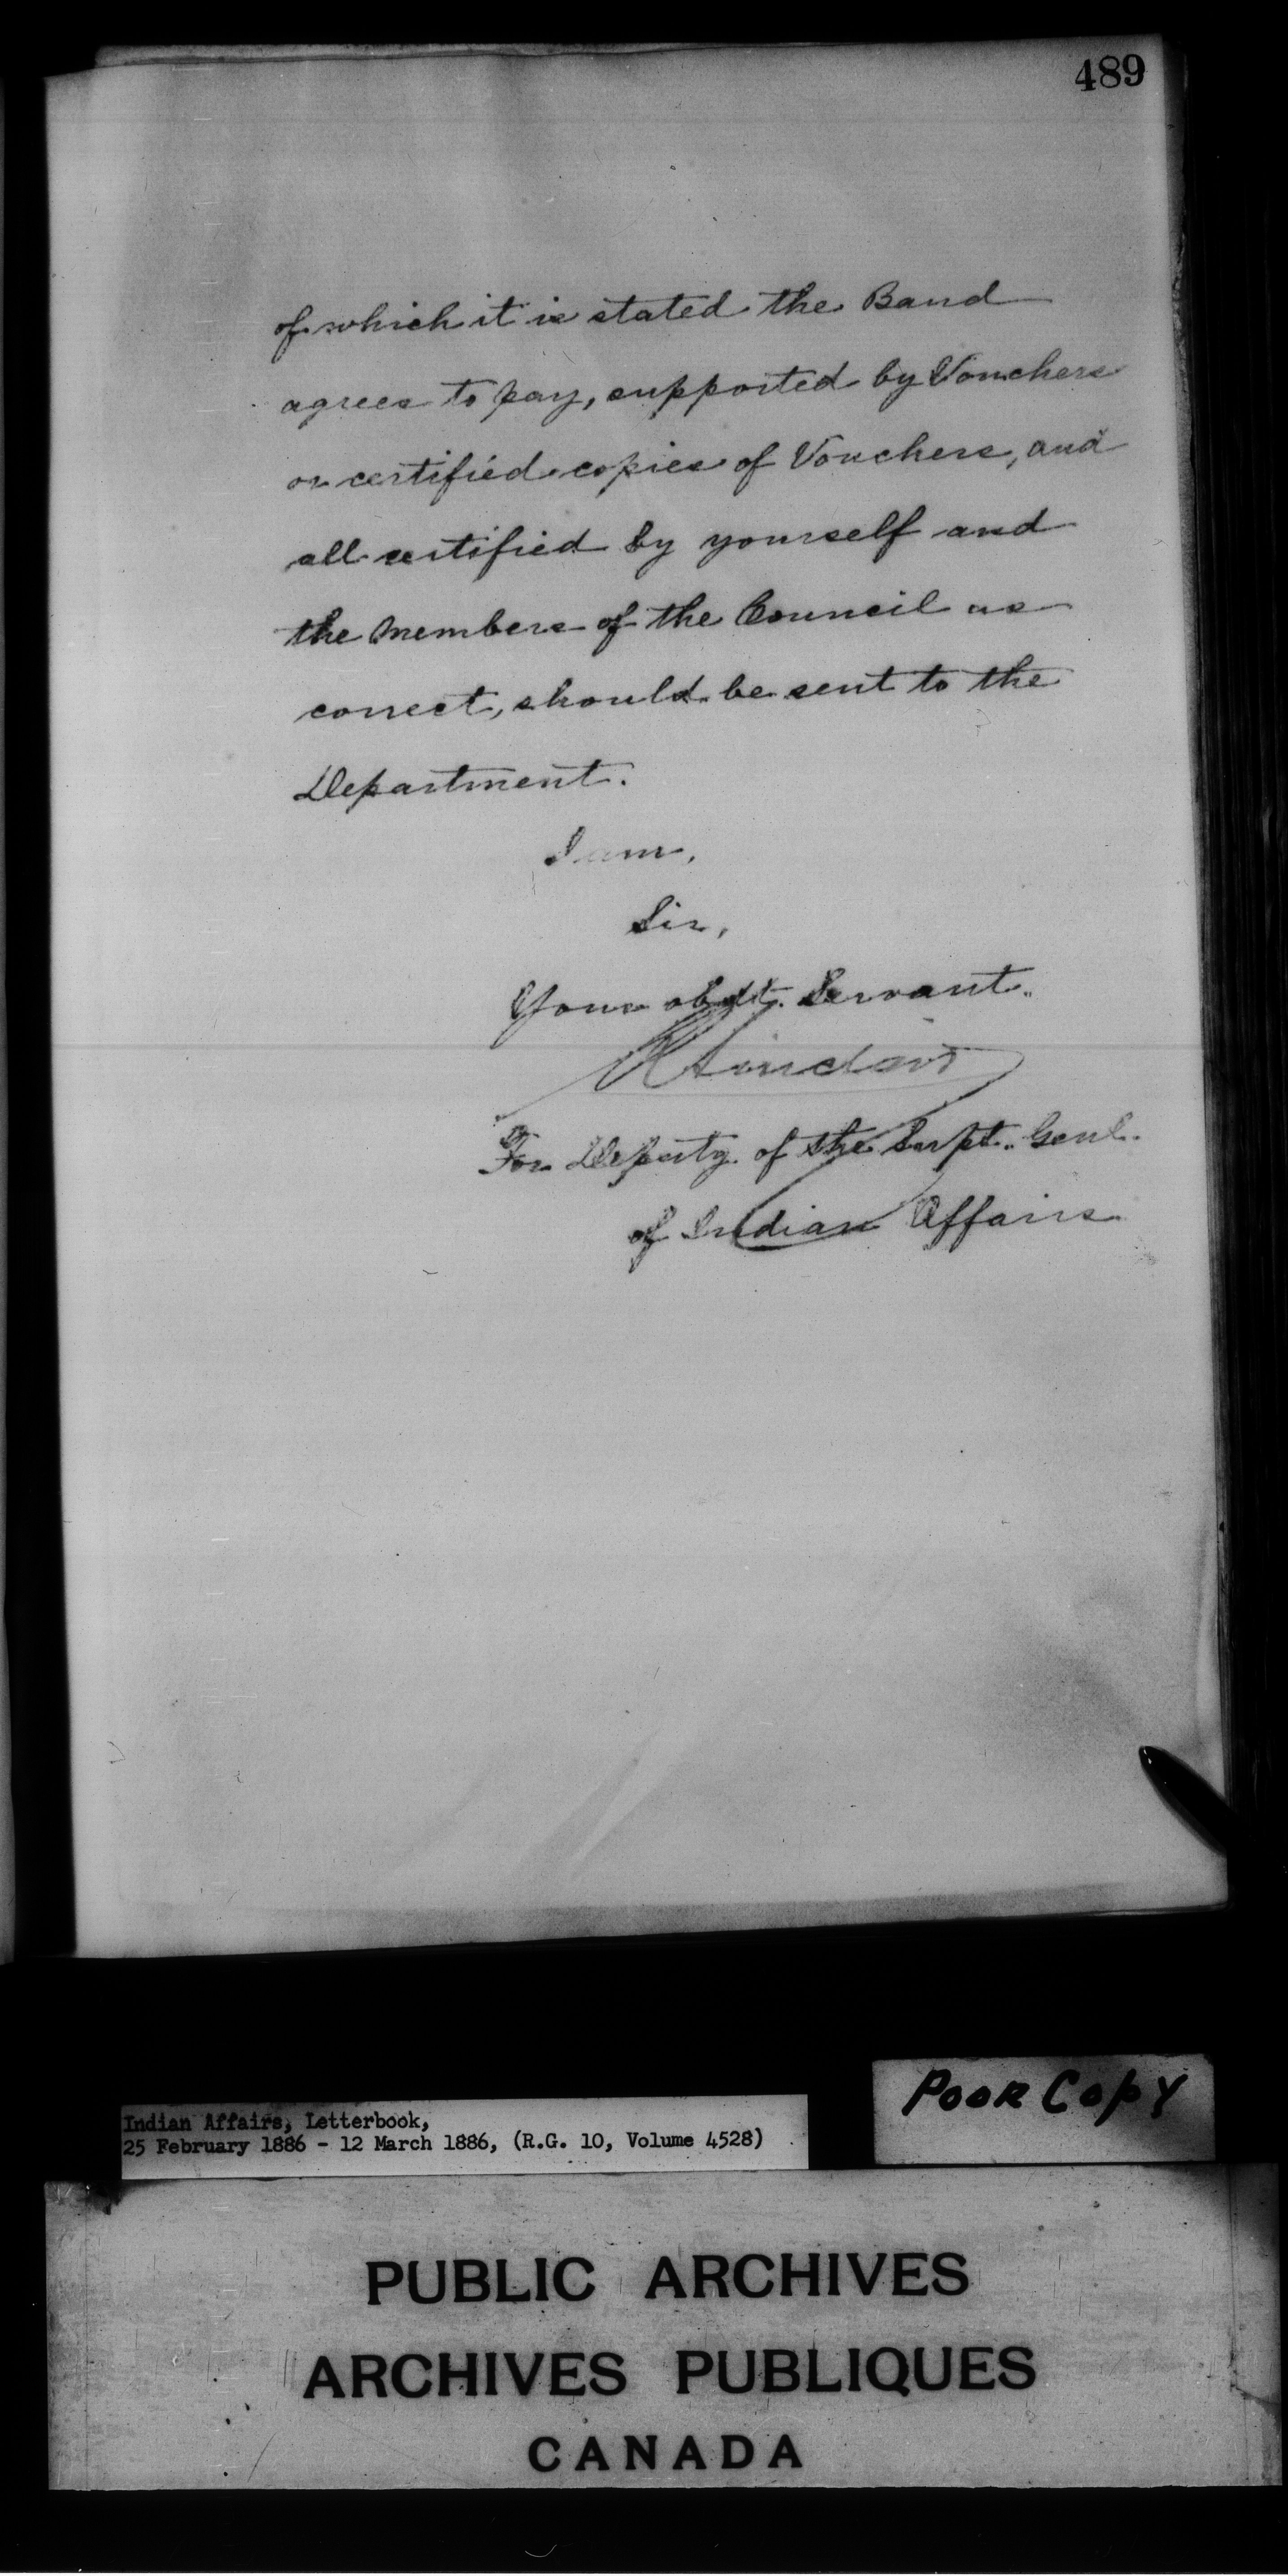 489
of which it is stated the Band
agrees to pay, supported by Vouchers
or certified copies of Vouchers, and
all certified by yourself and
the Members of the Council as
correct, should be sent to the
Department.
I am,
Sir,
Your obdt. Servant.
For Deputy of the Supt. Genl.
of Indian Affairs
Poor Copy
Indian Affairs, Letterbook,
25 February 1886 - 12 March 1886, (R.G. 10, Volume 4528)
PUBLIC ARCHIVES
ARCHIVES PUBLIQUES
CANADA